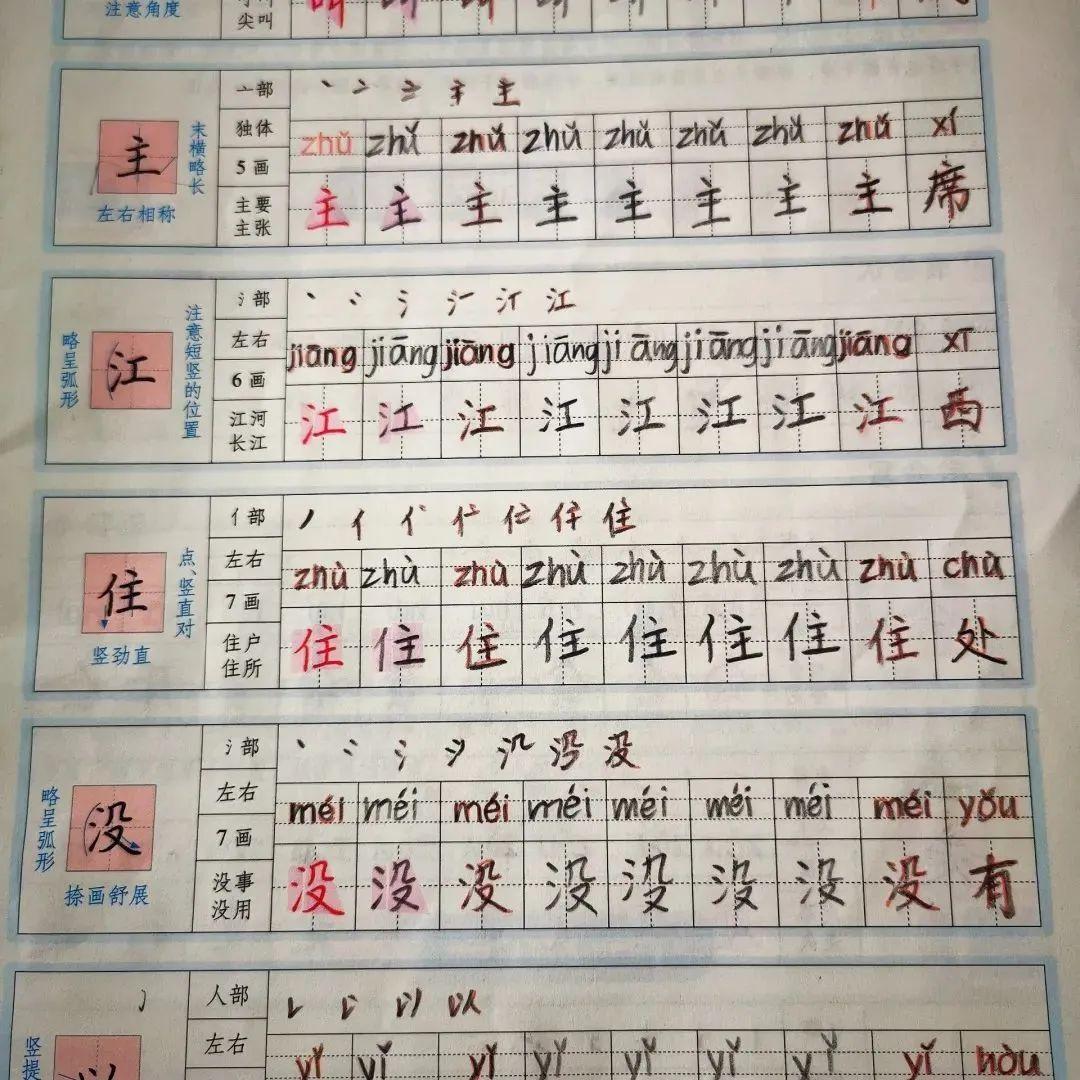 注意角度
尖叫
主
末横略长
左右相称
亠部
独体
5画
主要
主张
丶 亠 主
zhǔ zhǔ zhǔ zhǔ zhǔ zhǔ zhǔ zhǔ xí
主 主 主 主 主 主 主 主 席
略呈弧形
江
注意短竖的位置
氵部
左右
6画
江河
长江
丶 冫 氵 江
jiāng jiāng jiāng jiāng jiāng jiāng jiāng jiāng xī
江 江 江 江 江 江 江 江 西
住
点、竖直对
竖劲直
亻部
左右
7画
住户
住所
丿 亻 住
zhù zhù zhù zhù zhù zhù zhù zhù chù
住 住 住 住 住 住 住 住 处
略呈弧形
没
捺画舒展
氵部
左右
7画
没事
没用
丶 冫 氵 没
méi méi méi méi méi méi méi méi yǒu
没 没 没 没 没 没 没 没 有
竖提
以
人部
左右
以
yǐ yǐ yǐ yǐ yǐ yǐ yǐ yǐ hòu